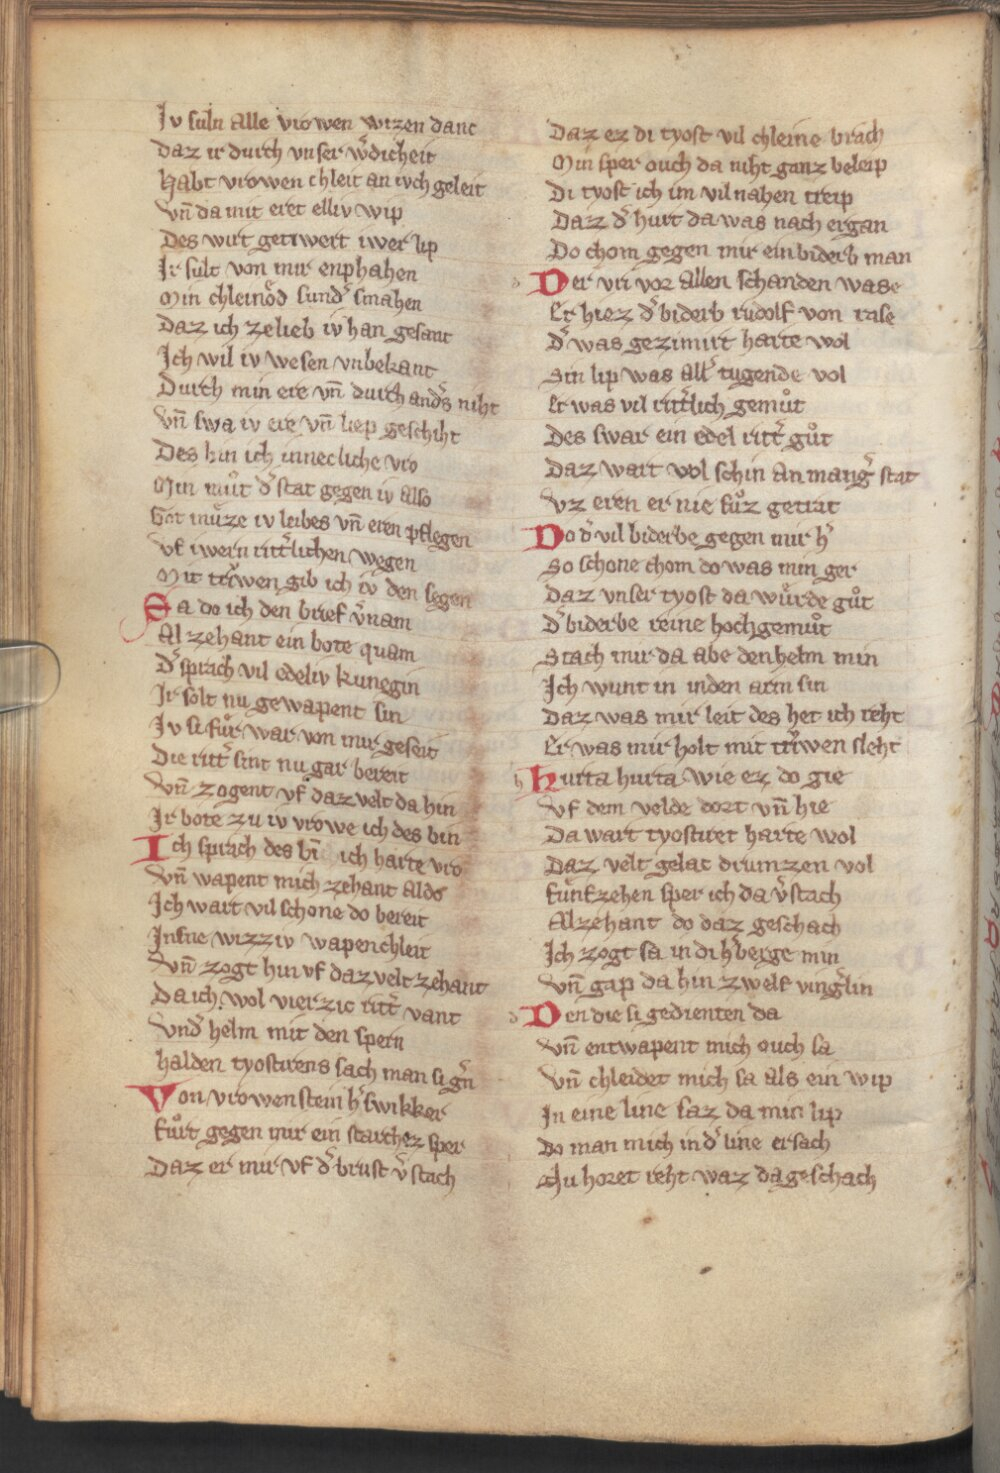 Iv suln alle vrowen wizen danc
Daz ir durch vnser w̾dicheit
Habt vrowen chleit an ivch geleit
Vn̄ da mit eret elliv wip
Des wirt getiwert iwer lip
Ir sult von mir enphahen
Min chleinǒd sund̾ smahen
Daz ich ze lieb iv han gesant
Ich wil iv wesen vnbekant
Durch min ere vn̄ durch and̾s niht
Vn̄ swa iv ere vn̄ liep geschiht
Des bin ich innecliche vro
Min můt d̾ stat gegen iv also
Got můze iv leibes vn̄ eren pflegen
Vf iwern ritt̾lichen wegen
Mit triwen gib ich iv den segen
Sa do ich den brief v̾nam
Al zehant ein bote quam
D̾ sprach vil edeliv kunegin
Ir solt nu gewapent sin
Iv si fůr war von mir geseit
Die ritt̾ sint nu gar bereit
Vn̄ zogent vf daz velt da hin
Ir bote zu iv vrowe ich des bin
Ich sprach des bī ich harte vro
Vn̄ wapent mich zehant aldo
Ich wart vil schone do bereit
In sne wizziv wapenchleit
Vn̄ zogt hin vf daz velt zehant
Da ich wol vierzic ritt̾ vant
Vnd̾ helm mit den spern
Halden tyostirens sach man si g̾n
Von vrowenstein h̾ swikker
Fůrt gegen mir ein starchez sper
Daz er mir vf d̾ brust v̾stach
Daz ez di tyost vil chleine brach
Min sper ouch da niht ganz beleip
Di tyost ich im vil nahen treip
Daz d̾ hurt da was nach ergan
Do chom gegen mir ein biderb man
Der vri vor allen schanden wase
Er hiez d̾ biderb rudolf von rase
D̾ was gezimirt harte wol
Sin lip was all̾ tugende vol
Er was vil ritt̾lich gemůt
Des swar ein edel ritt̾ gůt
Daz wart vol schin an mang̾ stat
Vz eren er nie fůz getrat
Do d̾ vil biderbe gegen mir h̾
So schone chom do was min ger
Daz vnser tyost da wůrde gůt
D̾ biderbe reine hochgemůt
Stach mir da abe den helm min
Ich wunt in in den arm sin
Daz was mir leit des het ich reht
Er was mir holt mit triwen sleht
Hurta hurta wie ez do gie
Vf dem velde dort vn̄ hie
Da wart tyostiret harte wol
Daz velt gelac drumzen vol
Fůnfzehen sper ich da v̾stach
Alzehant do daz geschach
Ich zogt sa in di h̾berge min
Vn̄ gap da hin zwelf ving̾lin
Den die si gedienten da
Vn̄ entwapent mich ouch sa
Vn̄ chleidet mich sa als ein wip
In eine line saz da min lip
Do man mich in d̾ line ersach
Nu horet reht waz da geschach